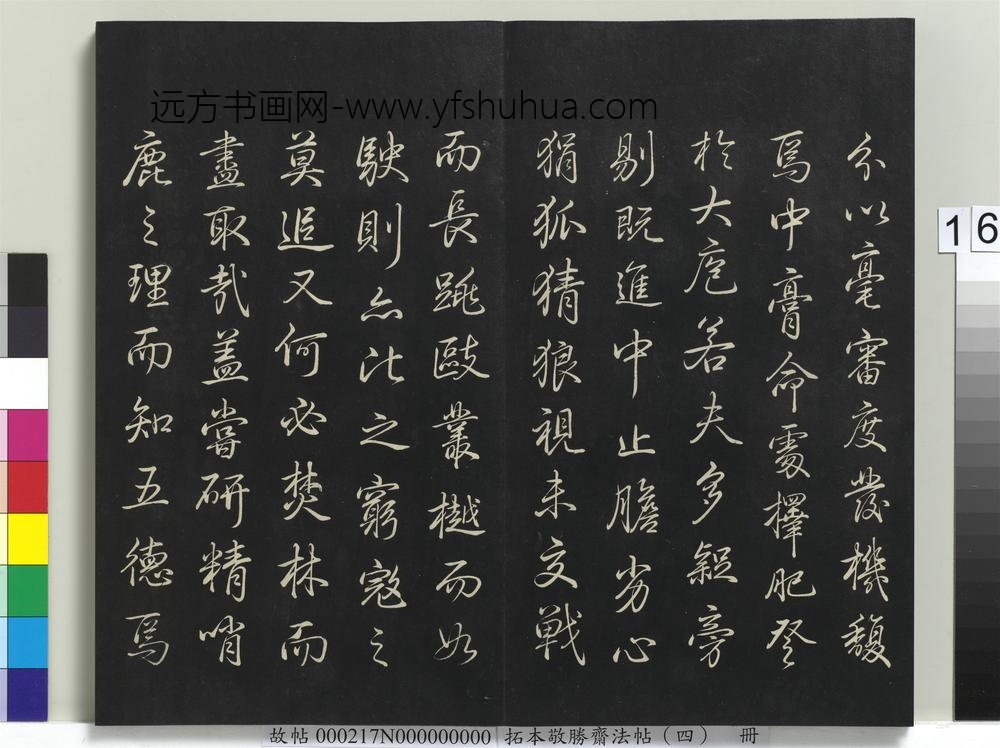 远方书画网-www.yfshuhua.com
分以毫審度發機馥
焉中膏命處擇肥登
於大庖若夫多旁
剔既進中止膽劣心
狷狐猜狼視未交戰
而長跳敺叢樾而如
駛則亦比之窮寇之
莫追又何必焚林而
盡取哉盖嘗研精哨
鹿之理而知五德焉
16
故帖 000217N000000000 拓本敬勝齋法帖（四） 冊